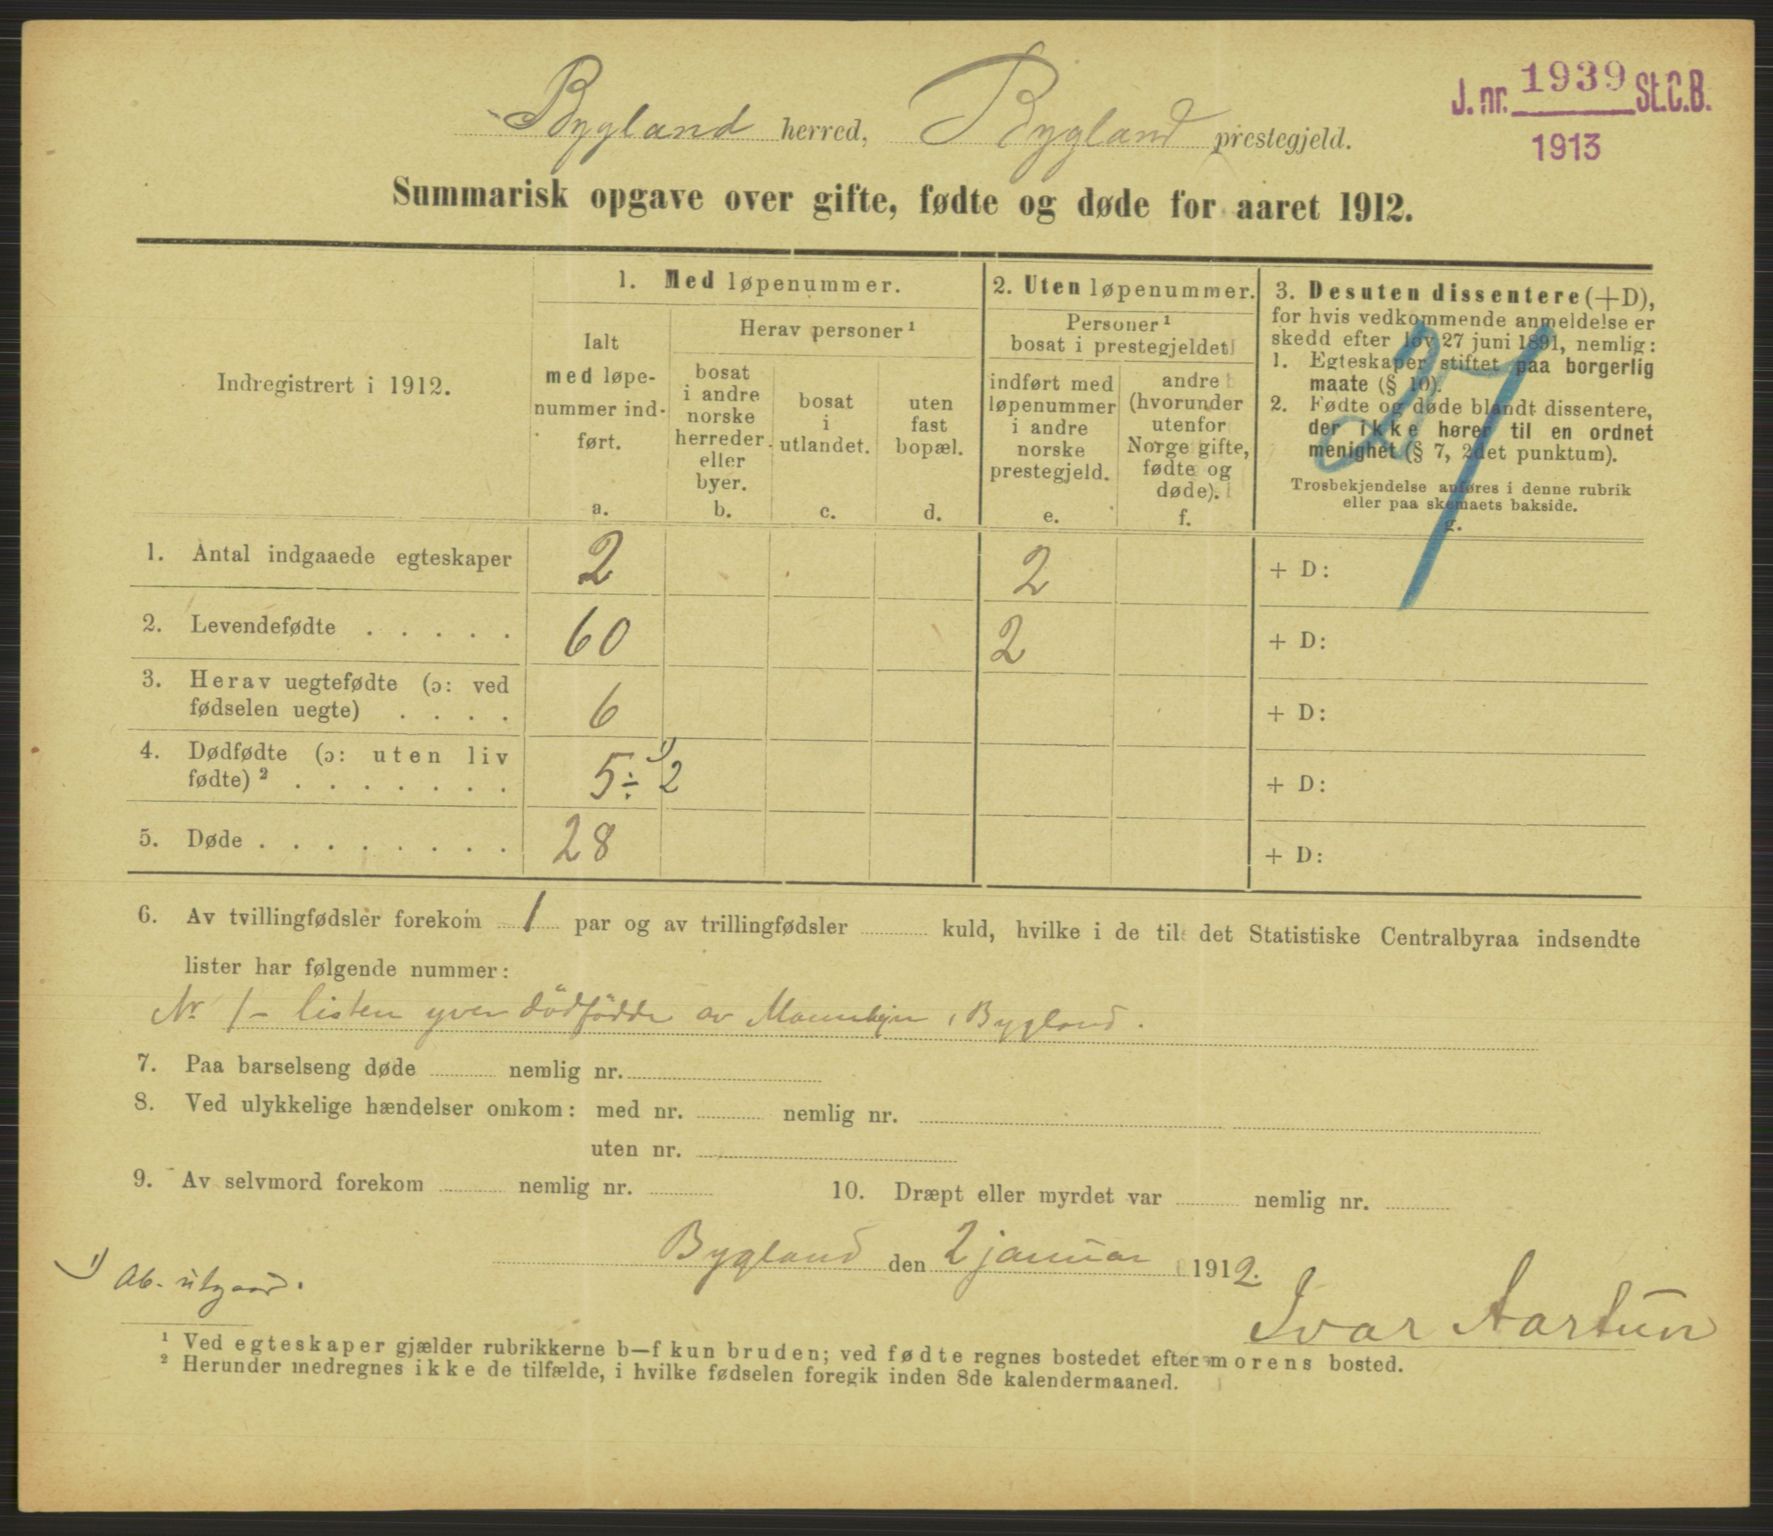 J. nr. 1939 St.C.B.
1913
Bygland herred, Bygland prestegjeld.
Summarisk opgave over gifte, fødte og døde for aaret 1912.
Indregistrert i 1912.
1. Med løpenummer.
Ialt med løpenummer indført.
a.
Herav personer¹
bosat i andre norske herreder eller byer.
b.
bosat i utlandet.
c.
uten fast bopæl.
d.
2. Uten løpenummer.
Personer¹ bosat i prestegjeldet
indført med løpenummer i andre norske prestegjeld.
e.
andre (hvorunder utenfor Norge gifte, fødte og døde).
f.
3. Desuten dissentere (+D),
for hvis vedkommende anmeldelse er
skedd efter lov 27 juni 1891, nemlig:
1. Egteskaper stiftet paa borgerlig
maate (§ 10).
2. Fødte og døde blandt dissentere,
der ikke hører til en ordnet
menighet (§ 7, 2det punktum).
Trosbekjendelse anføres i denne rubrik
eller paa skemaets bakside.
g.
27
1. Antal indgaaede egteskaper 2 2 + D:
2. Levendefødte . . . . . 60 2 + D:
3. Herav uegtefødte (ɔ: ved
fødselen uegte) . . . . 6 + D:
4. Dødfødte (ɔ: uten liv
fødte)² . . . . . . . 5 ÷ 2 ¹) + D:
5. Døde . . . . . . . . 28 + D:
6. Av tvillingfødsler forekom 1 par og av trillingfødsler kuld, hvilke i de til det Statistiske Centralbyraa indsendte
lister har følgende nummer:
Nr. 1 – listen yver dödfödde av Mannkjøn i Bygland.
7. Paa barselseng døde nemlig nr.
8. Ved ulykkelige hændelser omkom: med nr. nemlig nr.
uten nr.
9. Av selvmord forekom nemlig nr. 10. Dræpt eller myrdet var nemlig nr.
Bygland den 2 januar 1912.
¹) Ab.
Ivar Aartun
¹ Ved egteskaper gjælder rubrikkerne b—f kun bruden; ved fødte regnes bostedet efter morens bosted.
² Herunder medregnes ikke de tilfælde, i hvilke fødselen foregik inden 8de kalendermaaned.